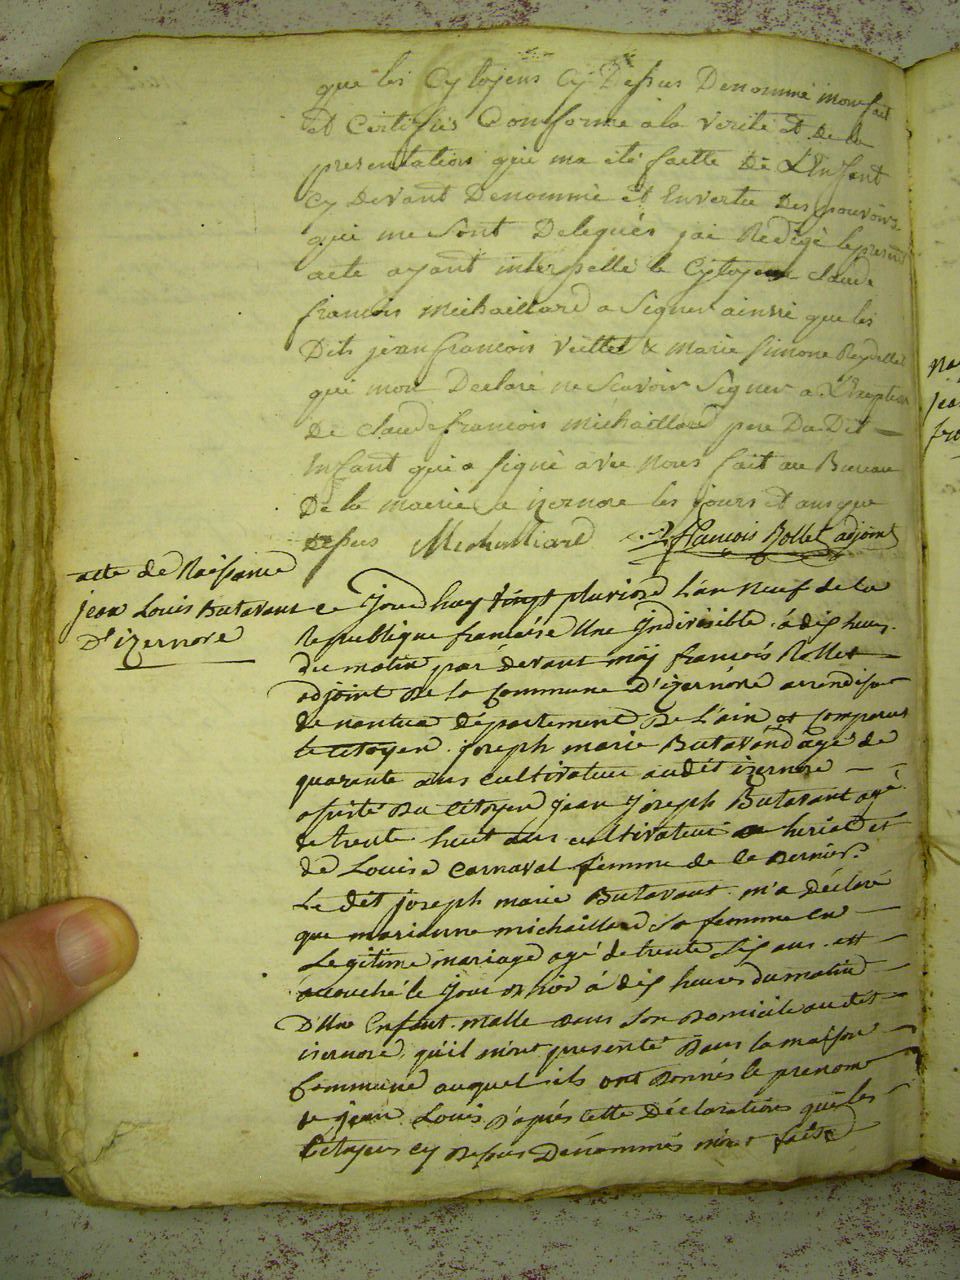 que les Cytoyens Cy Dessus Denommé monfait
et Certifiés Conforme a la verité et De la
presentation qui ma été faitte De L'Enfant
Cy Devant Denommé et Envertu Des pouvoirs
qui me Sont Delegués jai Redigé le present
acte ayant interpellé le Cytoyen claude
francois Michaillard a Signer ainssi que les
Dits jean francois Veillet & marie simone Reydellet
qui mon Declaré ne Scavoir Signer a L'Exception
De claude francois Michaillard pere Du Dit
Enfant qui a signé avec nous fait au Bureau
De la mairie a izernore les jours et ans que
dessus Michailliard francois Rollet adjoint
acte de Naissance
jean Louis Butavant
D'izernore
ce Jourd huy vingt pluviose L'an Neuf de la
Republique francaise Une Indivisible à dix heures
du matin par devant möy francois Rollet
adjoint de la Commune D'izernore arrondiss
de nantua département De L'ain et Comparus
le citoyen joseph marie Butavand agé de
quarante ans cultivateur audit izernore
assisté du Citoyen jean Joseph Butavant agé
de trente huit ans cultivateur a heriat et
de Louise Carnaval femme de ce dernier
Le dit joseph marie Butavant m'a déclaré
que marianne michaillard Sa femme en
Legitime mariage agé de trente Six ans est
accouché le Jour d'hier à dix heures du matin
D'Une Enfant malle dans Son Domicile audit
izernore qu'il m'ont presenté Dans la maison
Commune auquel ils ont Donnés le prenom
de jean Louis D'après cette Déclaration que les
Citoyens cy Dessus Dénommés m'ont faite